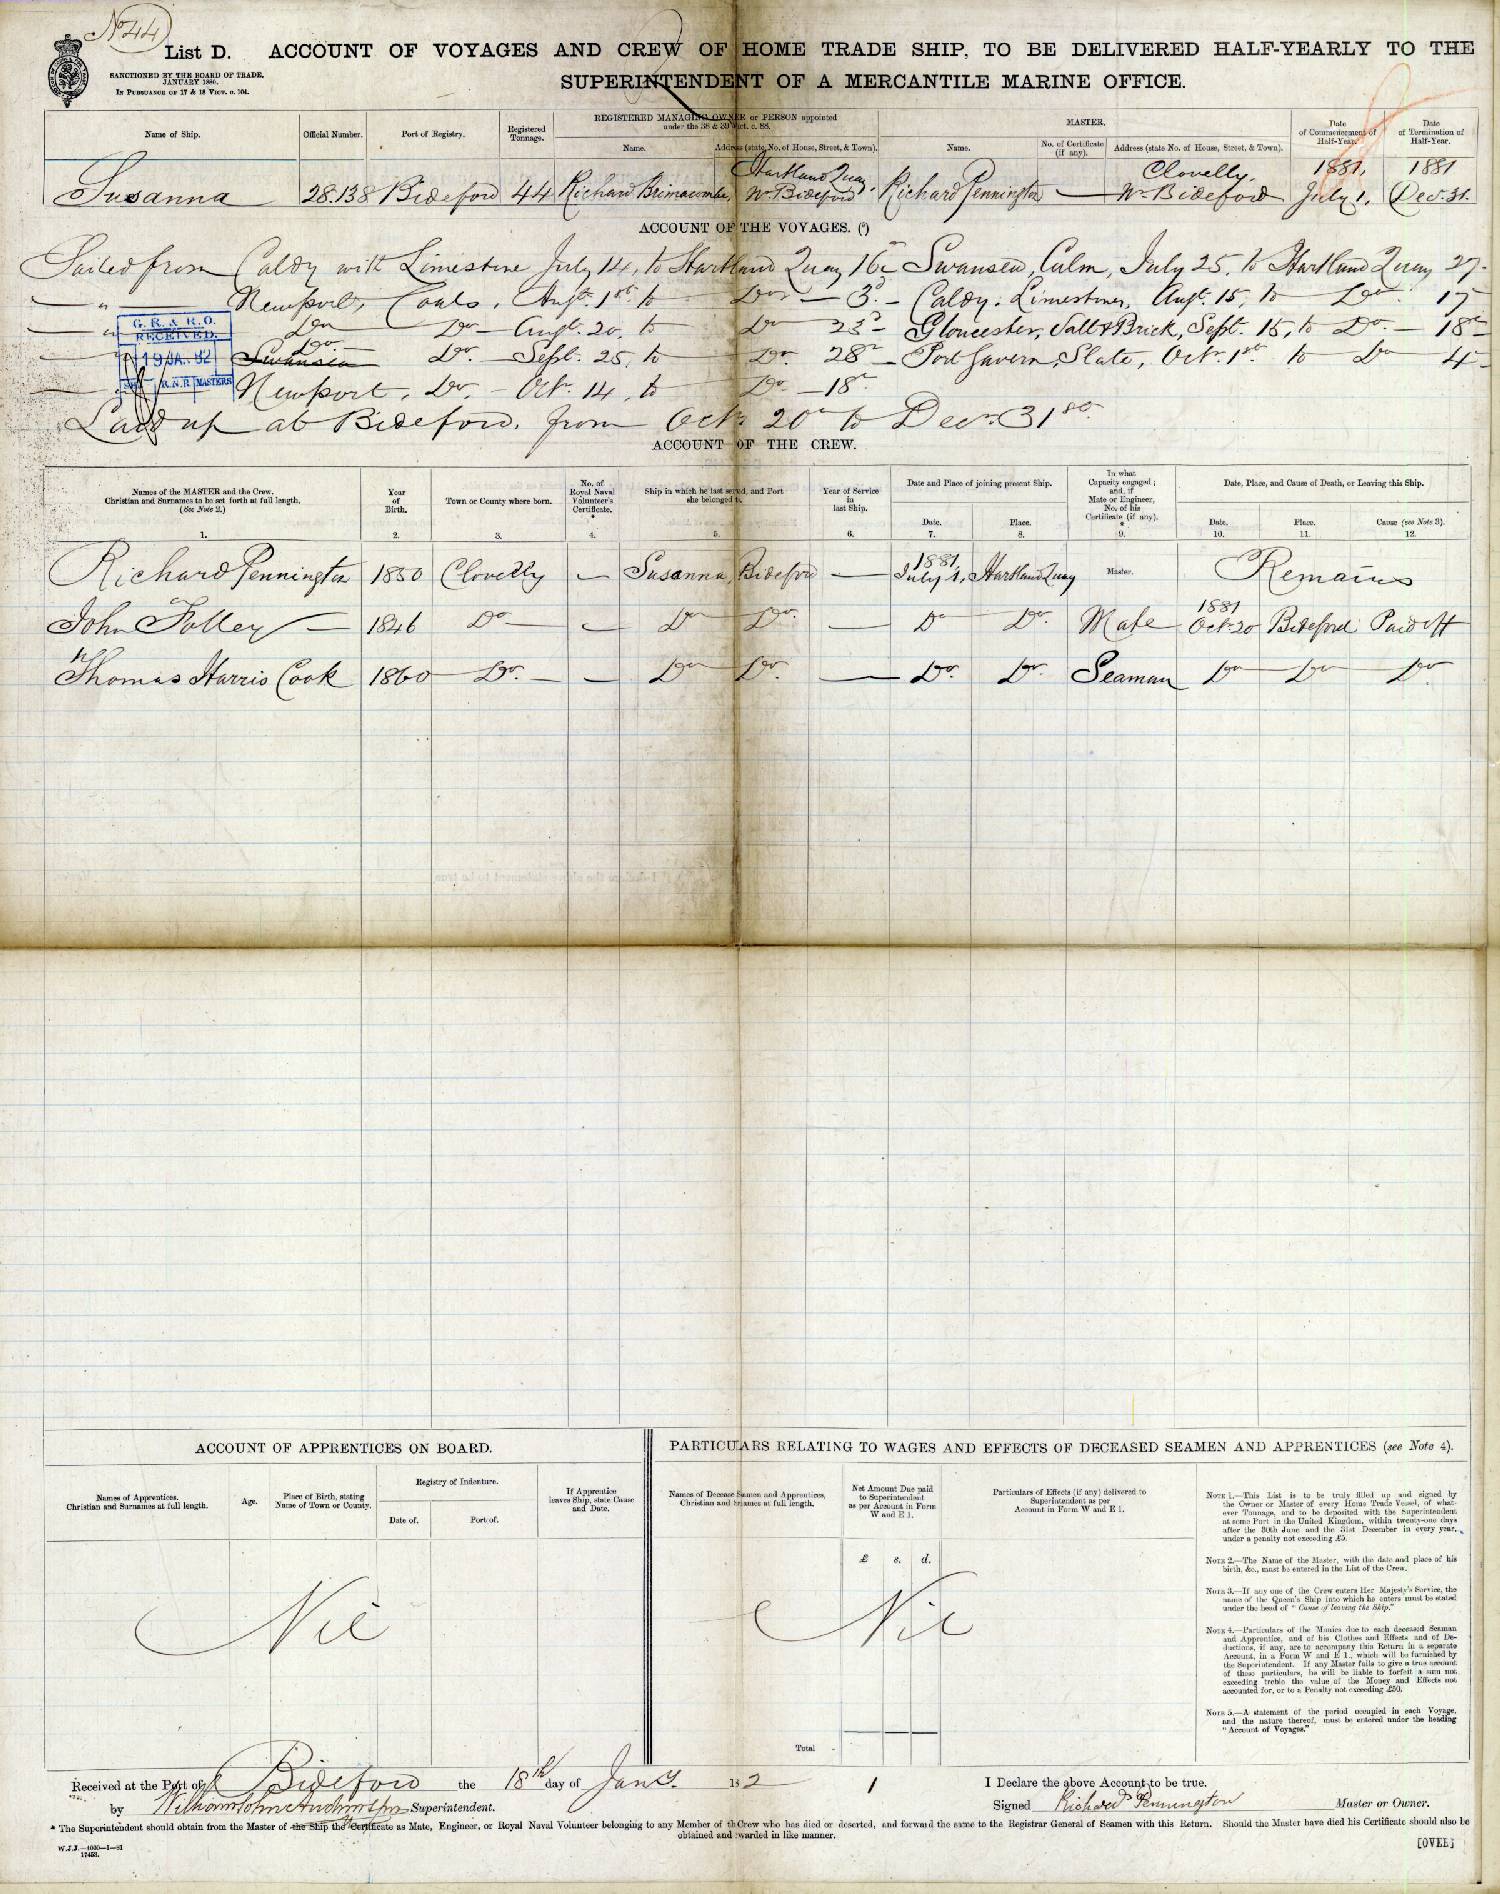 No 44
List D. ACCOUNT OF VOYAGES AND CREW OF HOME TRADE SHIP, TO BE DELIVERED HALF-YEARLY TO THE
SUPERINTENDENT OF A MERCANTILE MARINE OFFICE.
SANCTIONED BY THE BOARD OF TRADE,
JANUARY 1880.
IN PURSUANCE OF 17 & 18 VICT. c. 104.
Name of Ship. Official Number. Port of Registry. Registered Tonnage. REGISTERED MANAGING OWNER or PERSON appointed under the 38 & 39 Vict. c. 88. MASTER. Date of Commencement of Half-Year. Date of Termination of Half-Year.
Name. Address (state No. of House, Street, & Town). Name. No. of Certificate (if any). Address (state No. of House, Street, & Town).
Hartland Quay, Clovelly, 1881, 1881
Susanna 28.138 Bideford 44 Richard Brimacombe, Nr. Bideford Richard Pennington — Nr. Bideford July 1, Dec. 31.
ACCOUNT OF THE VOYAGES. (5)
Sailed from Caldy with Limestone July 14, to Hartland Quay 16 Swansea, Culm, July 25, to Hartland Quay 27
— " — Newport, Coals, Augt. 1st. to Do — 3d. — Caldy. Limestone, Augt. 15, to Do. 17
— " Do Do — Augt. 20, to Do 23d — Gloucester, Salt & Brick, Sept. 15, to Do. — 18
— " Swansea Do Do. — Sept. 25, to Do. 28 — Port Gavern, Slate, Octr. 1st to Do 4
— " Newport, Do. — Octr. 14, to Do — 18
Laid up at Bideford, from Octr. 20 to Decr. 31st.
G. R. & R. O.
RECEIVED.
19 JA. 82
R.N.R MASTERS
ACCOUNT OF THE CREW.
Names of the MASTER and the Crew. Christian and Surnames to be set forth at full length. (See Note 2.) Year of Birth. Town or County where born. No. of Royal Naval Volunteer's Certificate. * Ship in which he last served, and Port she belonged to. Year of Service in last Ship. Date and Place of joining present Ship. In what Capacity engaged; and, if Mate or Engineer, No. of his Certificate (if any). * Date, Place, and Cause of Death, or Leaving this Ship.
Date. Place. Date. Place. Cause (see Note 3).
1. 2. 3. 4. 5. 6. 7. 8. 9. 10. 11. 12.
Richard Pennington 1850 Clovelly — Susanna, Bideford — 1881, July 1, Hartland Quay Master. Remains
John Folley — 1846 Do — Do Do. — Do Do. Mate 1881 Oct. 20 Bideford Paid off
Thomas Harris Cook 1860 Do. — — Do Do. — Do. Do. Seaman Do Do Do
ACCOUNT OF APPRENTICES ON BOARD.
Names of Apprentices. Christian and Surnames at full length. Age. Place of Birth, stating Name of Town or County. Registry of Indenture. If Apprentice leaves Ship, state Cause and Date.
Date of. Port of.
Nil
PARTICULARS RELATING TO WAGES AND EFFECTS OF DECEASED SEAMEN AND APPRENTICES (see Note 4).
Names of Deceased Seamen and Apprentices, Christian and Surnames at full length. Net Amount Due paid to Superintendent as per Account in Form W and E 1. Particulars of Effects (if any) delivered to Superintendent as per Account in Form W and E 1.
£ s. d.
Nil
Total -
NOTE 1.—This List is to be truly filled up and signed by
the Owner or Master of every Home Trade Vessel, of what-
ever Tonnage, and to be deposited with the Superintendent
at some Port in the United Kingdom, within twenty-one days
after the 30th June and the 31st December in every year,
under a penalty not exceeding £5.
NOTE 2.—The Name of the Master, with the date and place of his
birth, &c., must be entered in the List of the Crew.
NOTE 3.—If any one of the Crew enters Her Majesty's Service, the
name of the Queen's Ship into which he enters must be stated
under the head of "Cause of leaving the Ship."
NOTE 4.—Particulars of the Monies due to each deceased Seaman
and Apprentice, and of his Clothes and Effects and of De-
ductions, if any, are to accompany this Return in a separate
Account, in a Form W and E 1., which will be furnished by
the Superintendent. If any Master fails to give a true account
of these particulars, he will be liable to forfeit a sum not
exceeding treble the value of the Money and Effects not
accounted for, or to a Penalty not exceeding £50.
NOTE 5.—A statement of the period occupied in each Voyage,
and the nature thereof, must be entered under the heading
"Account of Voyages."
Received at the Port of Bideford the 18th day of Jany. 18 2 1 I Declare the above Account to be true.
by William John Superintendent. Signed Richard Pennington Master or Owner.
* The Superintendent should obtain from the Master of the Ship the Certificate as Mate, Engineer, or Royal Naval Volunteer belonging to any Member of the Crew who has died or deserted, and forward the same to the Registrar General of Seamen with this Return. Should the Master have died his Certificate should also be
obtained and forwarded in like manner.
W.J.J.—4000—1—81
17453.
[OVER]